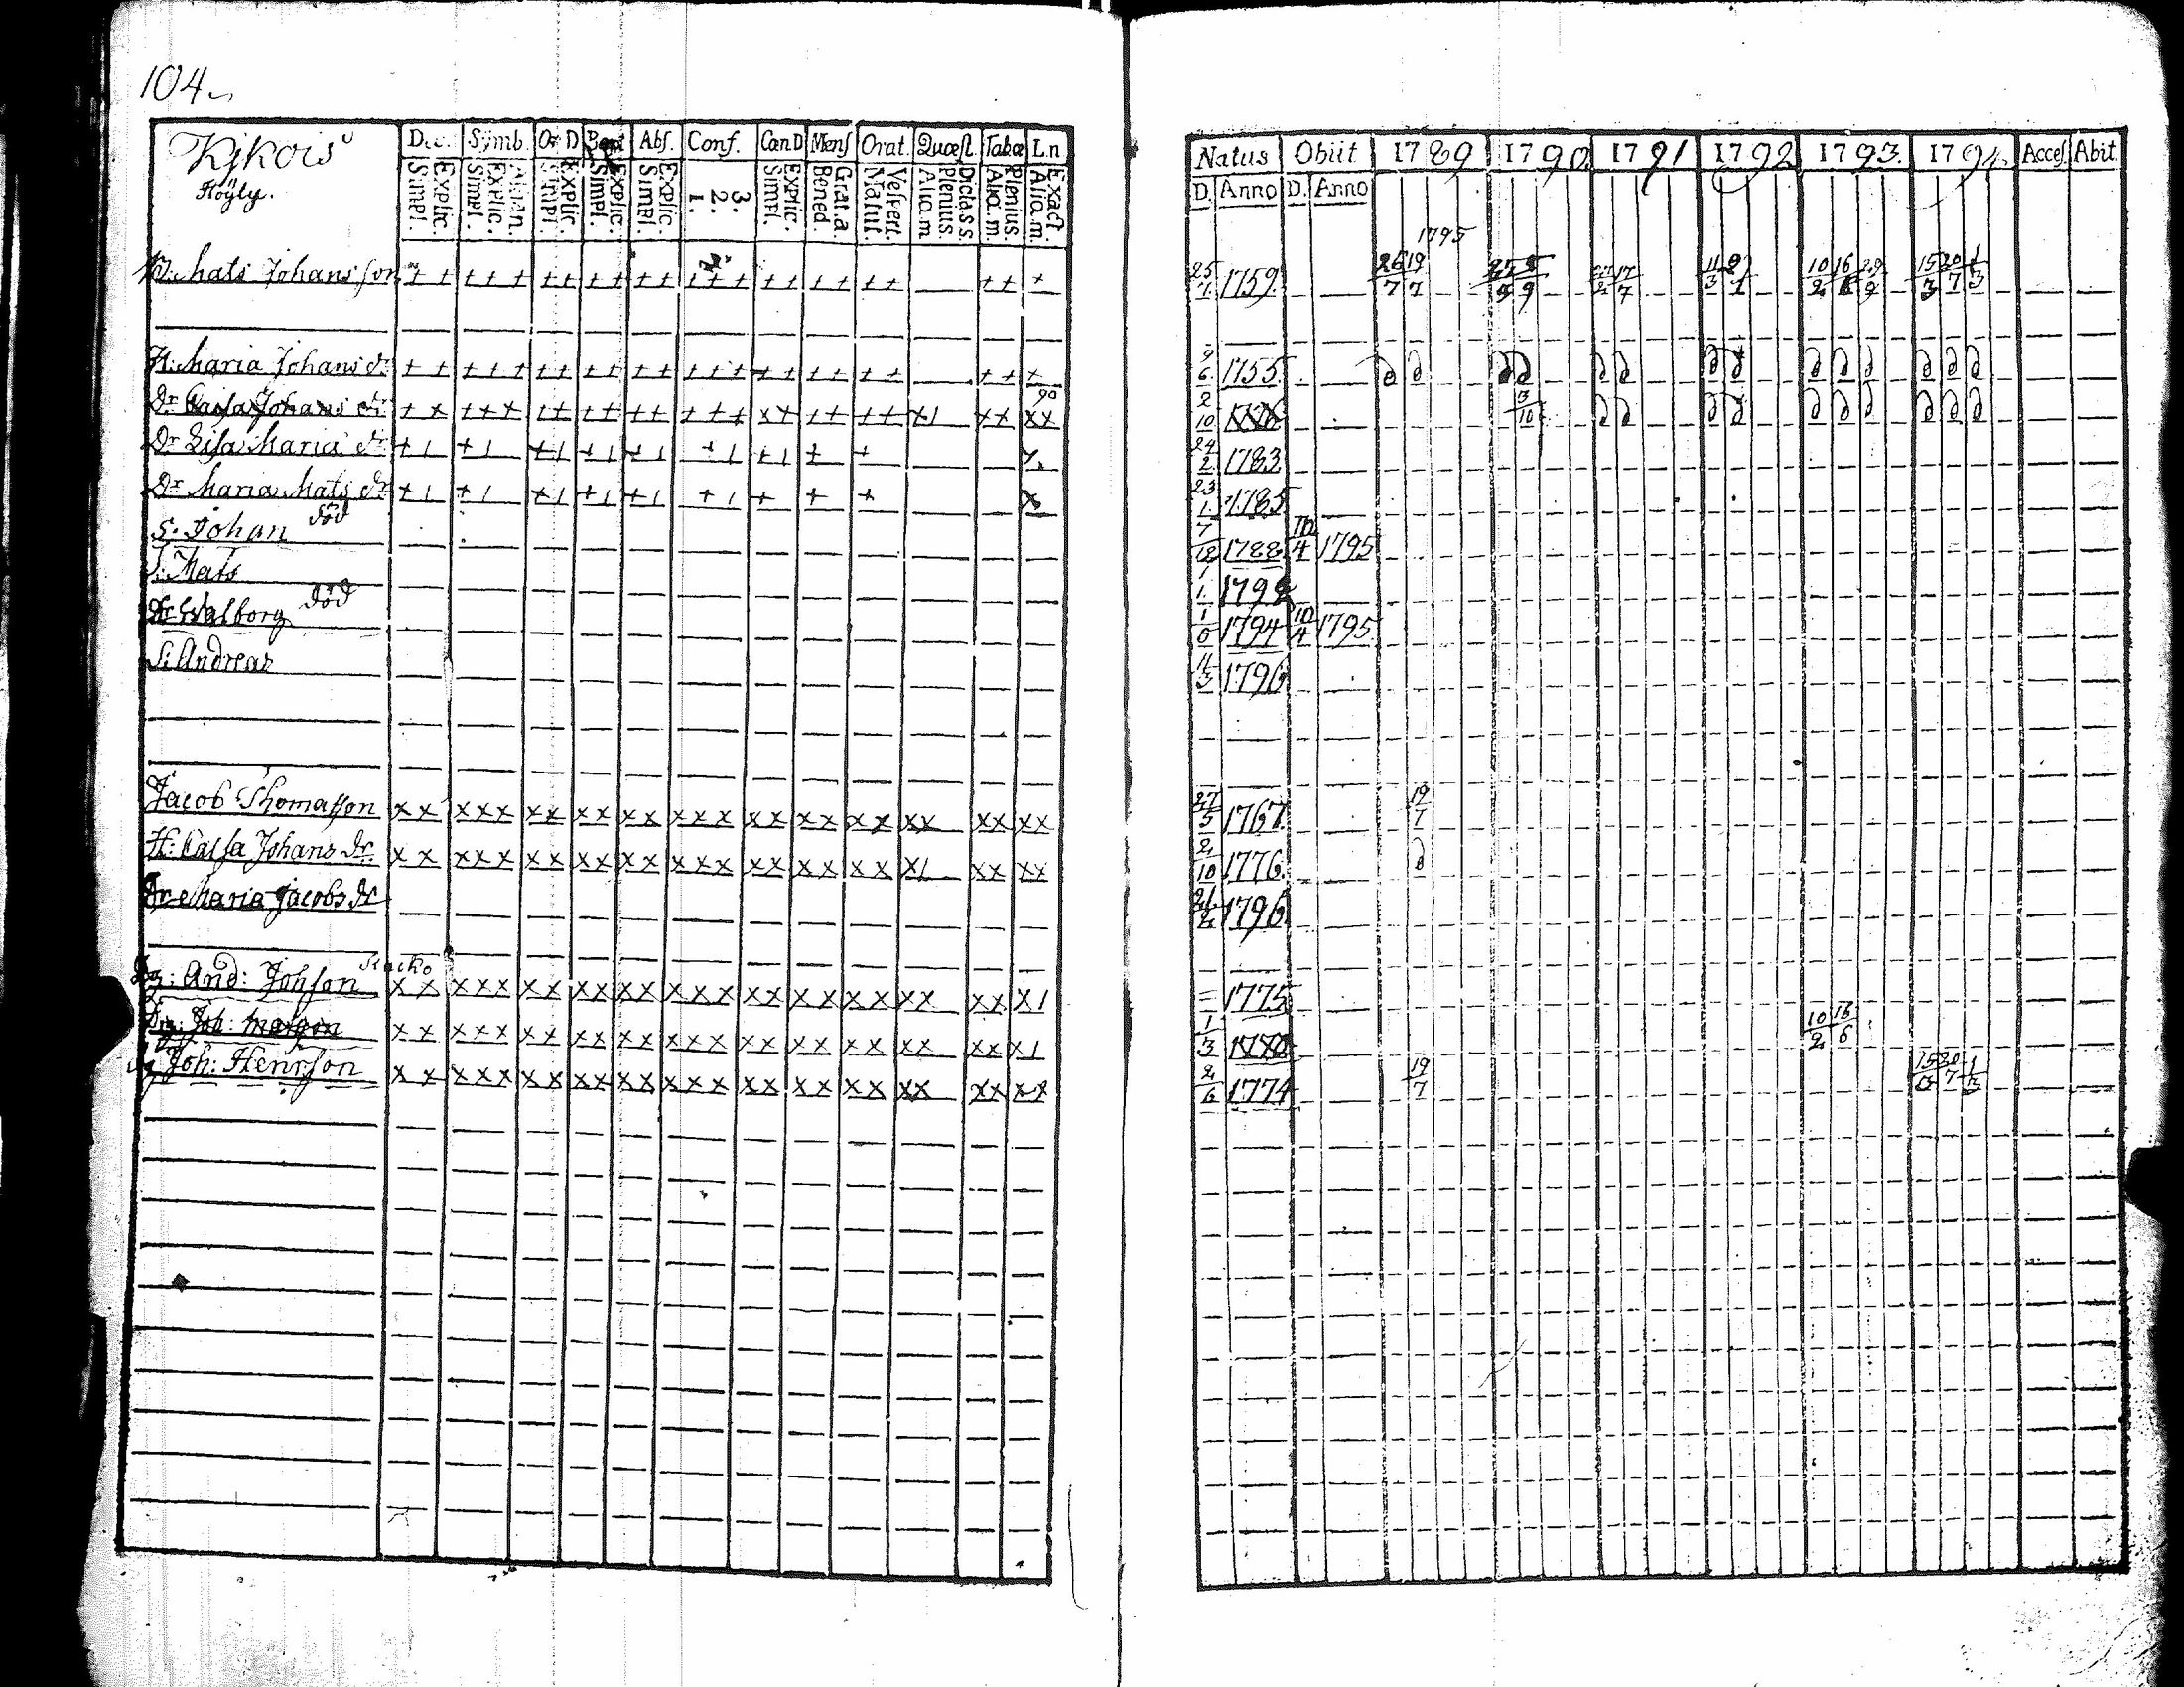 104.
Dec. Symb. Or D Bapt Abs. Conf. Can D Mens Orat. Quæst. Tabæ Ln
Kykois
Höyly.
Explic. Simpl. Athan. Explic. Simpl. Explic. Simpl. Explic. Simpl. Explic. Simpl. 3. 2. 1. Explic. Simpl. Grat. a. Bened. Vespert. Matut. Dictas s. Plenius. Aliq. m. Plenius. Aliq. m. Exact. Aliq. m.
B: Mats Johansson + + + + + + + + + + + + + + + + + + + + + + +
H: Maria Johans dr + + + + + + + + + + + + + + + + + + + + + + +
Dr Caisa Johans dr + x + + x + + + + + + + + + x x + + + + x 1 x x x x 90
Dr Lisa Maria dr + 1 + 1 + 1 + 1 + 1 + 1 + 1 + +
Dr Maria Mats dr + 1 + 1 + 1 + 1 + 1 + 1 + + + x
S: Johan död
S: Mats
Dr Walborg död
S: Andreas
Jacob Thomasson x x x x x x x x x x x x x x x x x x x x x x x x x x
H: Caisa Johans dr. x x x x x x x x x x x x x x x x x x x x x 1 x x x x
Dr Maria Jacobs dr
And: Johson x x x x x x x x x x x x x x x x x x x x x x x x x 1
Joh: x x x x x x x x x x x x x x x x x x x x x x x x x 1
Joh: Henrsson x x x x x x x x x x x x x x x x x x x x x x x x x x
Natus Obiit 1789 1790. 1791 1792 1793. 1794. Acces. Abit.
D. Anno D. Anno
1795
25/7 1759. 26/7 19/7 17/7 10/2 16/6 15/3 20/7 1/3
9/6 1755.
2/10
24/2 1783
23/1 1785
7/12 1788 4 1795
1/1 1792
1/6 1794 10/4 1795
11/3 1796
27/5 1767. 19/7
2/10 1776.
21/2 1796
1775
1/3 10/2 16/6
2/6 1774 19/7 15/3 20/7 1/3